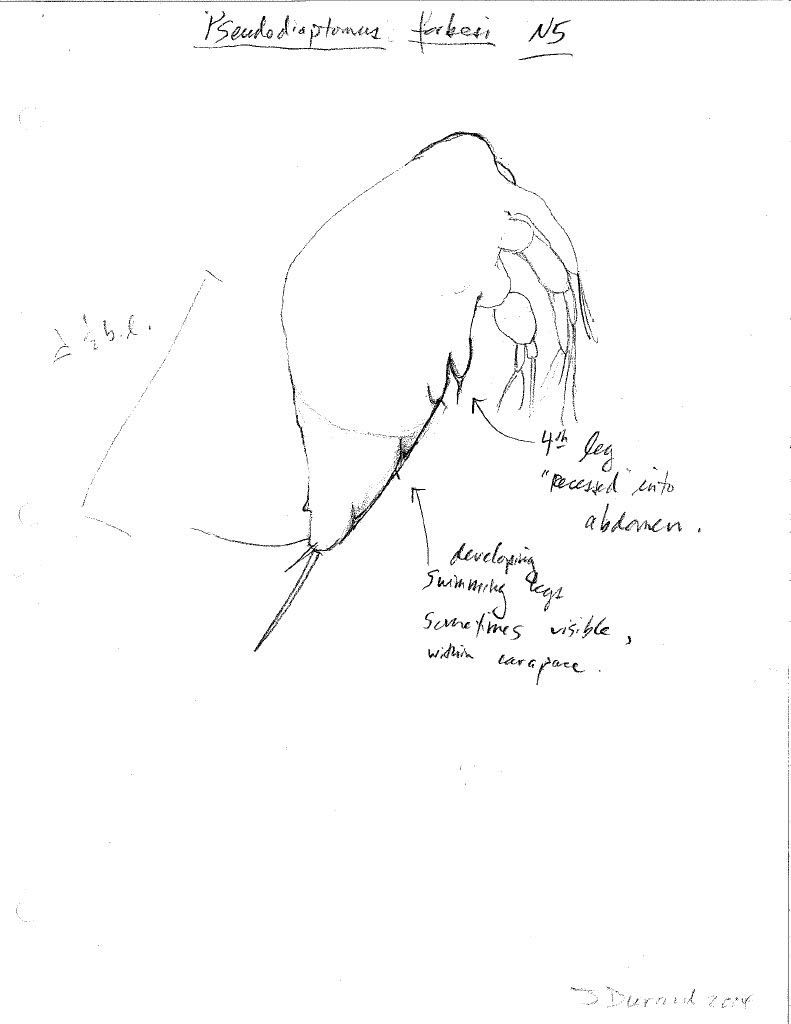 Pseudodiaptomus forbesi N5
≥ ½ b.l.
4th leg
"recessed" into
abdomen.
developing
swimming legs
sometimes visible,
within carapace.
J Durand 2004